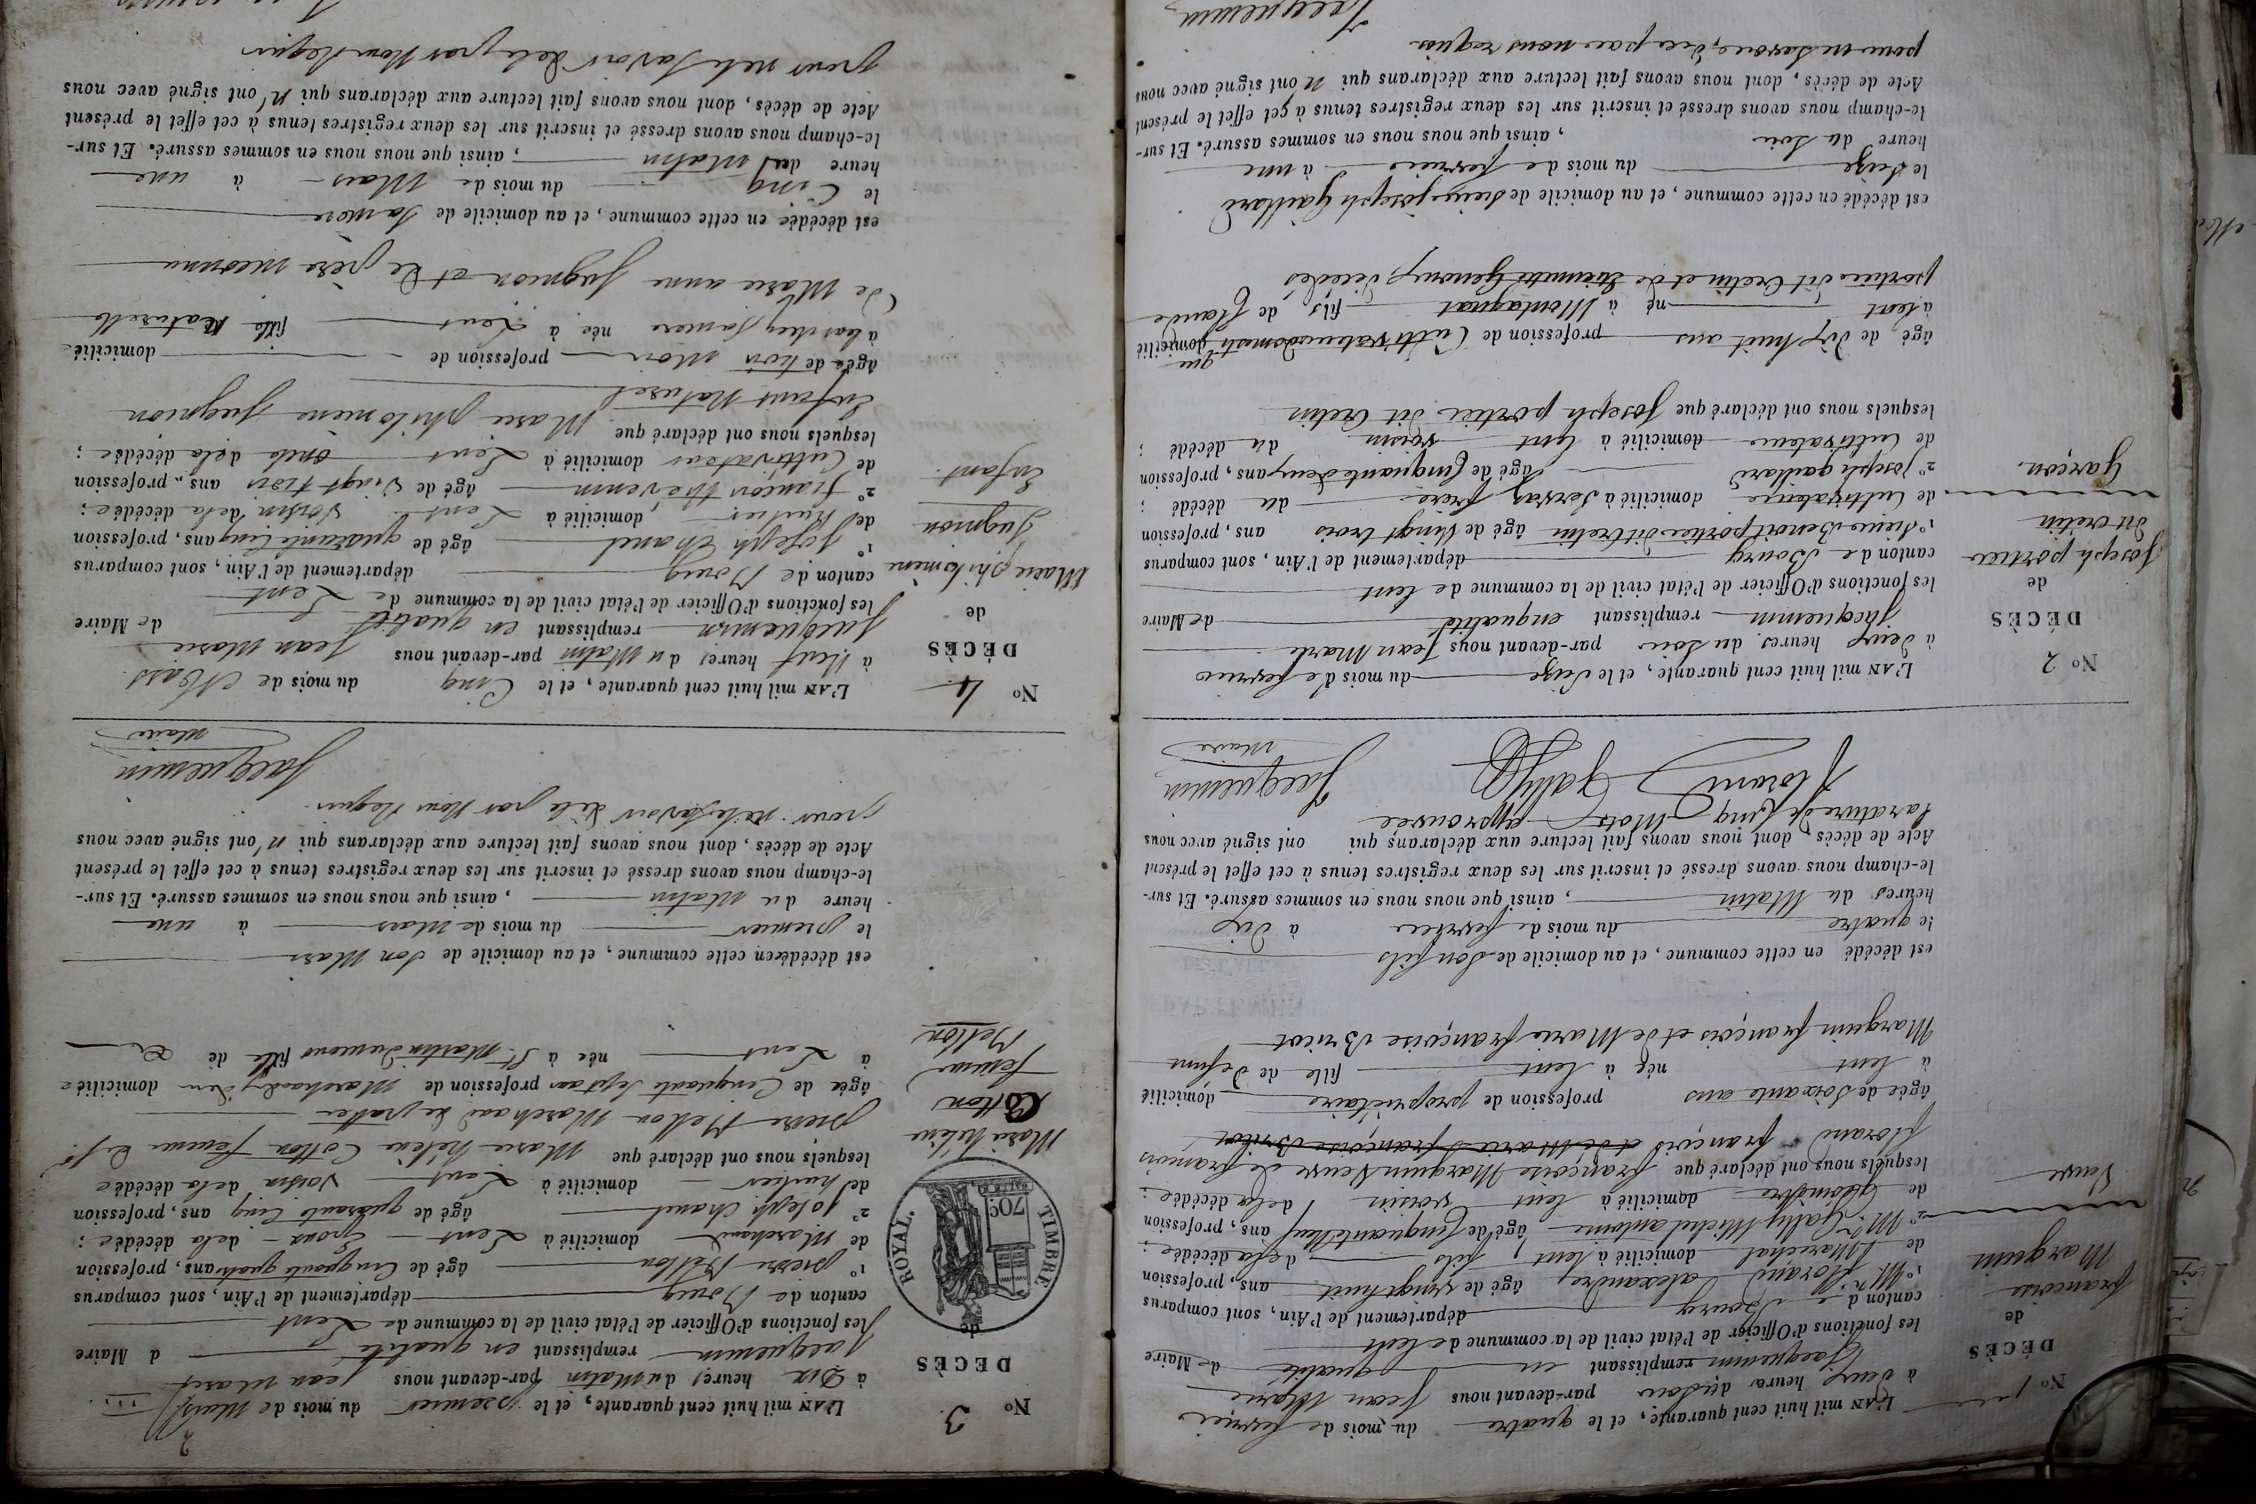 N° 1
DÉCÈS
de
françoise
Marguin
Veuve
L'AN mil huit cent quarante, et le quatre du mois de fevrier
à deux heures du soir par-devant nous Jean Marie
Jacquemin remplissant en qualité de Maire
les fonctions d'Officier de l'état civil de la commune de lent
canton de Bourg département de l'Ain, sont comparus
1° Mr. Morand alexandre, âgé de vingt huit ans, profession
de Marechal domicilié à lent, fils de la décédée;
2° Mr. Gally Michel antoine âgé de Cinquante Neuf ans, profession
de Géomètre domicilié à lent voisin de la décédée;
lesquels nous ont déclaré que françoise Marguin Veuve de francois
Morand françois et de Marie françoise Bricot
âgée de soixante ans profession de propriétaire domicilié
à lent née à lent fille de defunt
Marguin françois et de Marie françoise Bricot
est décédé en cette commune, et au domicile de Son fils
le quatre du mois de fevrier à dix
heures du Matin, ainsi que nous nous en sommes assuré. Et sur-
le-champ nous avons dressé et inscrit sur les deux registres tenus à cet effet le présent
Acte de décès, dont nous avons fait lecture aux déclarans qui ont signé avec nous
la rature de Cinq Mots approuvée
Morand Gally Jacquemin
Maire
N° 2
DÉCÈS
de
Joseph portier
dit Cretin
Garçon.
L'AN mil huit cent quarante, et le Seize du mois de fevrier
à deux heures du soir par-devant nous Jean Marie
Jacquemin remplissant en qualité de Maire
les fonctions d'Officier de l'état civil de la commune de lent
canton de Bourg département de l'Ain, sont comparus
1° Sieur Benoit portier dit Cretin âgé de vingt trois ans, profession
de Cultivateur domicilié à Servas frère du décédé;
2° Joseph gaillard âgé de Cinquante deux ans, profession
de Cultivateur domicilié à lent voisin du décédé;
lesquels nous ont déclaré que Joseph portier dit Cretin
âgé de dix huit ans profession de Cultivateur domestique domicilié
à lent né à Montagnat fils, de Claude
portier dit Cretin et de Genoux, décédés
est décédé en cette commune, et au domicile de Sieur joseph Gaillard
le Seize du mois de fevrier à une
heure du soir, ainsi que nous nous en sommes assuré. Et sur-
le-champ nous avons dressé et inscrit sur les deux registres tenus à cet effet le présent
Acte de décès, dont nous avons fait lecture aux déclarans qui n'ont signé avec nous
pour ne savoir, de ce par nous requis
Jacquemin
2
N° 3
DÉCÈS
de
TIMBRE ROYAL.
70c
Marie hélène
Cotton
femme
Bellon
L'AN mil huit cent quarante, et le premier du mois de Mars
à Dix heures du Matin par-devant nous Jean Marie
Jacquemin remplissant en qualité de Maire
les fonctions d'Officier de l'état civil de la commune de Lent
canton de Bourg département de l'Ain, sont comparus
1° pierre Bellon âgé de Cinquante quatre ans, profession
de Marchand domicilié à Lent Epoux de la décédée;
2° Joseph Chanel âgé de quarante Cinq ans, profession
de huilier domicilié à Lent Voisin de la décédée
lesquels nous ont déclaré que Marie hélène Cotton femme de Sr.
pierre Bellon Marchand
âgée de Cinquante Sept ans profession de Marchande domiciliée
à Lent née à St. Martin Dumont fille de
est décédée en cette commune, et au domicile de Son Mari
le premier du mois de Mars à une
heure du Matin, ainsi que nous nous en sommes assuré. Et sur-
le-champ nous avons dressé et inscrit sur les deux registres tenus à cet effet le présent
Acte de décès, dont nous avons fait lecture aux déclarans qui n'ont signé avec nous
pour ne le Savoir de ce par Nous Requis.
Jacquemin
Maire
N° 4
DÉCÈS
de
Marie philomène
Jugnon
Enfant.
L'AN mil huit cent quarante, et le Cinq du mois de Mars
à Neuf heures du Matin par-devant nous Jean Marie
Jacquemin remplissant en qualité de Maire
les fonctions d'Officier de l'état civil de la commune de Lent
canton de Bourg département de l'Ain, sont comparus
1° Joseph Chanel âgé de quarante Cinq ans, profession
de huilier domicilié à Lent Voisin de la décédée;
2° françois thévenin âgé de Vingt trois ans, profession
de Cultivateur domicilié à Lent oncle de la décédée;
lesquels nous ont déclaré que Marie philomène Jugnon
Enfant Naturel
âgée de trois Mois profession de domiciliée
à Lent chez sa mère née à Lent fille Naturelle
de Marie anne Jugnon et de père inconnu
est décédée en cette commune, et au domicile de Sa mère
le Cinq du mois de Mars à une
heure du Matin, ainsi que nous nous en sommes assuré. Et sur-
le-champ nous avons dressé et inscrit sur les deux registres tenus à cet effet le présent
Acte de décès, dont nous avons fait lecture aux déclarans qui n'ont signé avec nous
pour ne le Savoir de ce par Nous Requis